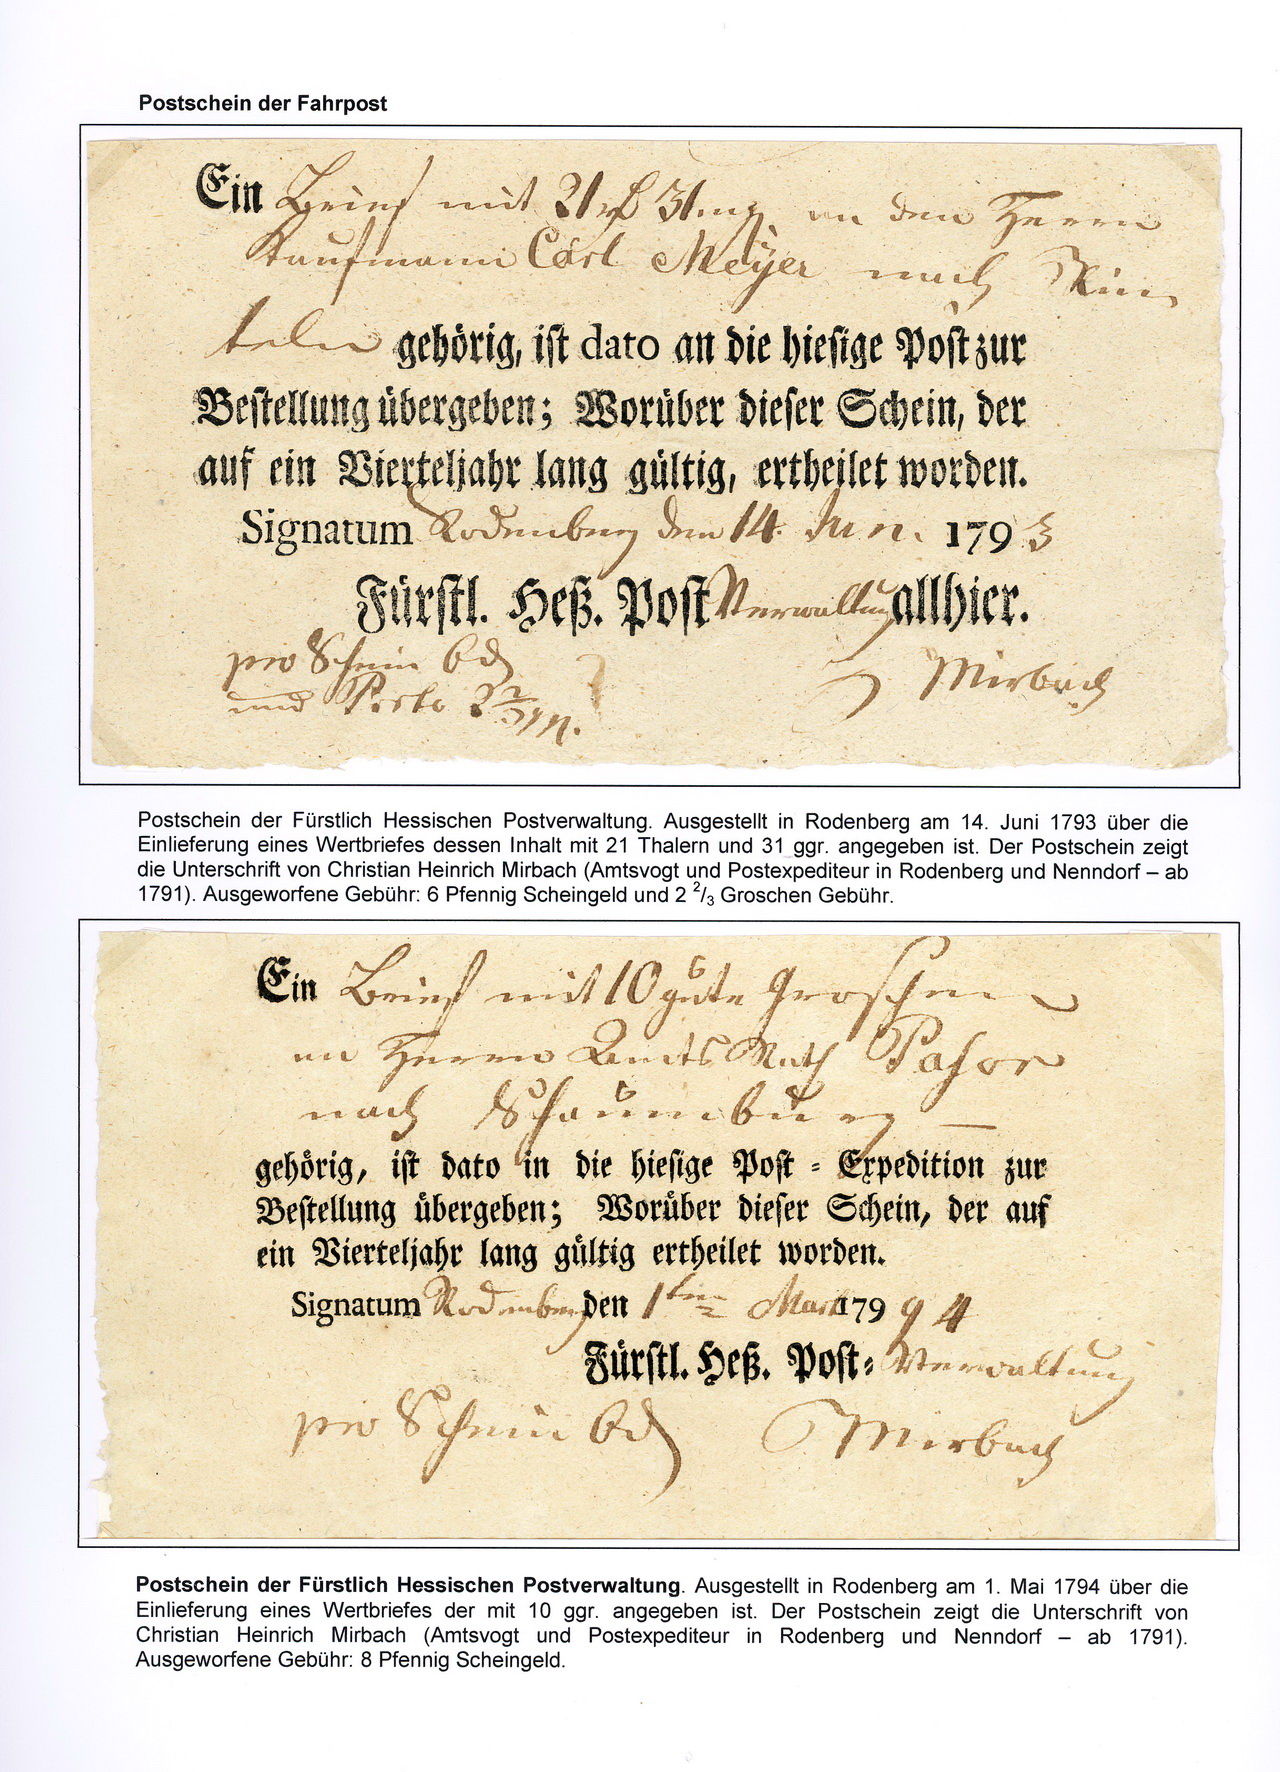 Postschein der Fahrpost
Ein Brief mit 21 rth 31 mg an den Herrn
Kaufmann Carl Meÿer nach Rin-
teln gehörig, ist dato an die hiesige Post zur
Bestellung übergeben; Worüber dieser Schein, der
auf ein Vierteljahr lang gültig, ertheilet worden.
Signatum Rodenberg den 14. Jun. 1793
Fürstl. Heß. Post Verwaltung allhier.
pro Schein 6 d
und Porto 2 2/3
Mirbach
Postschein der Fürstlich Hessischen Postverwaltung. Ausgestellt in Rodenberg am 14. Juni 1793 über die
Einlieferung eines Wertbriefes dessen Inhalt mit 21 Thalern und 31 ggr. angegeben ist. Der Postschein zeigt
die Unterschrift von Christian Heinrich Mirbach (Amtsvogt und Postexpediteur in Rodenberg und Nenndorf – ab
1791). Ausgeworfene Gebühr: 6 Pfennig Scheingeld und 2 2/3 Groschen Gebühr.
Ein Brief mit 10 gute Groschen
an Herrn Amts Rath
nach Schaumburg
gehörig, ist dato in die hiesige Post = Expedition zur
Bestellung übergeben; Worüber dieser Schein, der auf
ein Vierteljahr lang gültig ertheilet worden.
Signatum Rodenberg den 1ten 179 94
Fürstl. Heß. Post= Verwaltung
pro Schein 6 d Mirbach
Postschein der Fürstlich Hessischen Postverwaltung. Ausgestellt in Rodenberg am 1. Mai 1794 über die
Einlieferung eines Wertbriefes der mit 10 ggr. angegeben ist. Der Postschein zeigt die Unterschrift von
Christian Heinrich Mirbach (Amtsvogt und Postexpediteur in Rodenberg und Nenndorf – ab 1791).
Ausgeworfene Gebühr: 8 Pfennig Scheingeld.